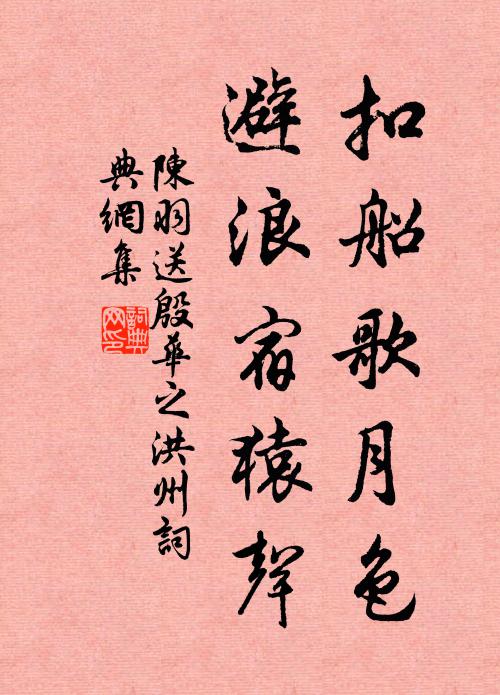 扣船歌月色
避浪宿猿聲
陳羽送殷華之洪州詞
典網集
詞典網印